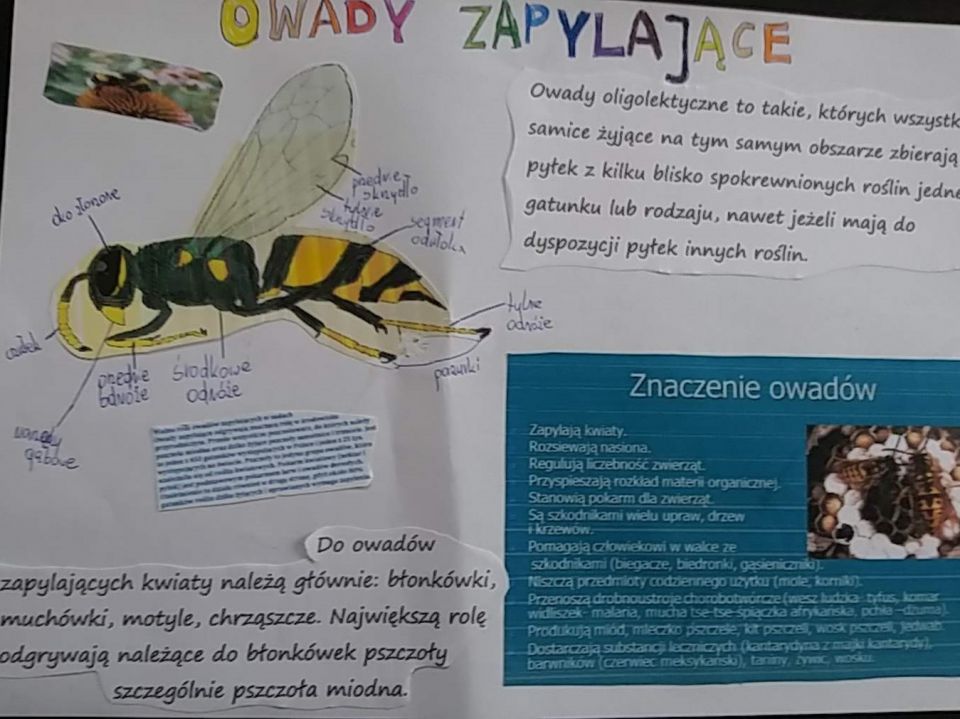 OWADY ZAPYLAJĄCE
Owady oligolektyczne to takie, których wszystk
samice żyjące na tym samym obszarze zbierają
pyłek z kilku blisko spokrewnionych roślin jedne
gatunku lub rodzaju, nawet jeżeli mają do
dyspozycji pyłek innych roślin.
oko złożone
przednie
skrzydło
tylne
skrzydło
segment
odwłoka
tylne
odnóże
pazurki
czułek
przednie
odnóże
środkowe
odnóże
narządy
gębowe
Znaczenie owadów
Zapylają kwiaty.
Rozsiewają nasiona.
Regulują liczebność zwierząt.
Przyspieszają rozkład materii organicznej.
Stanowią pokarm dla zwierząt.
Są szkodnikami wielu upraw, drzew
i krzewów.
Pomagają człowiekowi w walce ze
szkodnikami (biegacze, biedronki, gąsieniczniki).
Niszczą przedmioty codziennego użytku (mole, korniki).
Przenoszą drobnoustroje chorobotwórcze (wesz ludzka- tyfus, komar
widliszek- malaria, mucha tse-tse-śpiączka afrykańska, pchła –dżuma).
Produkują miód, mleczko pszczele, kit pszczeli, wosk pszczeli, jedwab.
Dostarczają substancji leczniczych (kantarydyna z majki kantarydy),
barwników (czerwiec meksykański), taniny, żywic, wosku.
Do owadów
zapylających kwiaty należą głównie: błonkówki,
muchówki, motyle, chrząszcze. Największą rolę
odgrywają należące do błonkówek pszczoły
szczególnie pszczoła miodna.